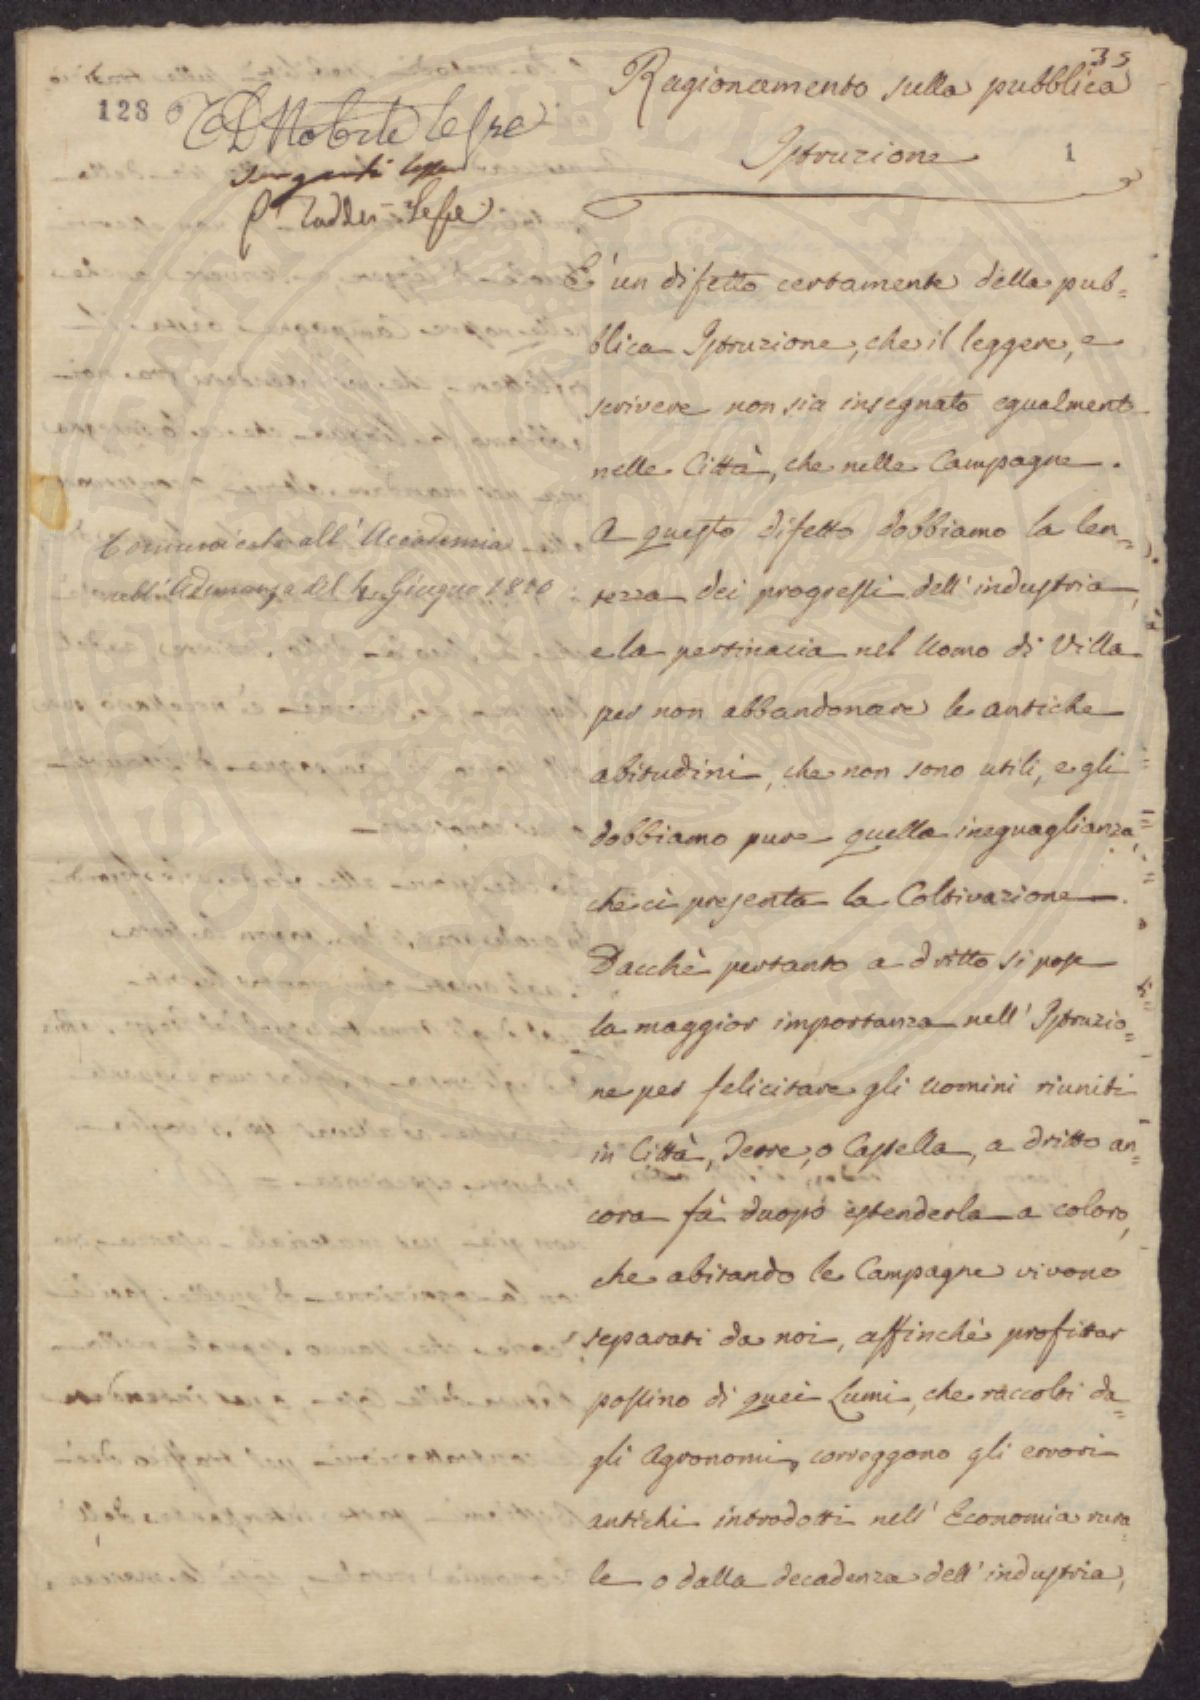 35
128
Nobile lesse
lesse
P. Taddei Lesse
Ragionamento sulla pubblica
Istruzione
1
E' un difetto certamente della pub=
blica Istruzione, che il leggere, e
scrivere non sia insegnato egualment
nelle Città, che nelle Campagne.
A questo difetto dobbiamo la len=
tezza dei progressi dell' industria,
e la pertinacia nel Uomo di Villa
per non abbandonare le antiche
abitudini, che non sono utili, e gli
dobbiamo pure quella ineguaglianza,
che ci presenta la Coltivazione.
Dacchè pertanto a dritto si pose
la maggior importanza nell' Istruzio=
ne per felicitare gli Uomini riuniti
in Città, Terre, o Castella, a dritto an=
cora fà duopo estenderla a coloro,
che abitando le Campagne vivono
separati da noi, affinchè profittar
possino di quei Lumi, che raccolti da=
gli Agronomi, correggono gli errori
antichi introdotti nell' Economia rura=
le o dalla decadenza dell' industria,
Comunicato all' Accademia
nell' Adunanza del 4. Giugno 1810